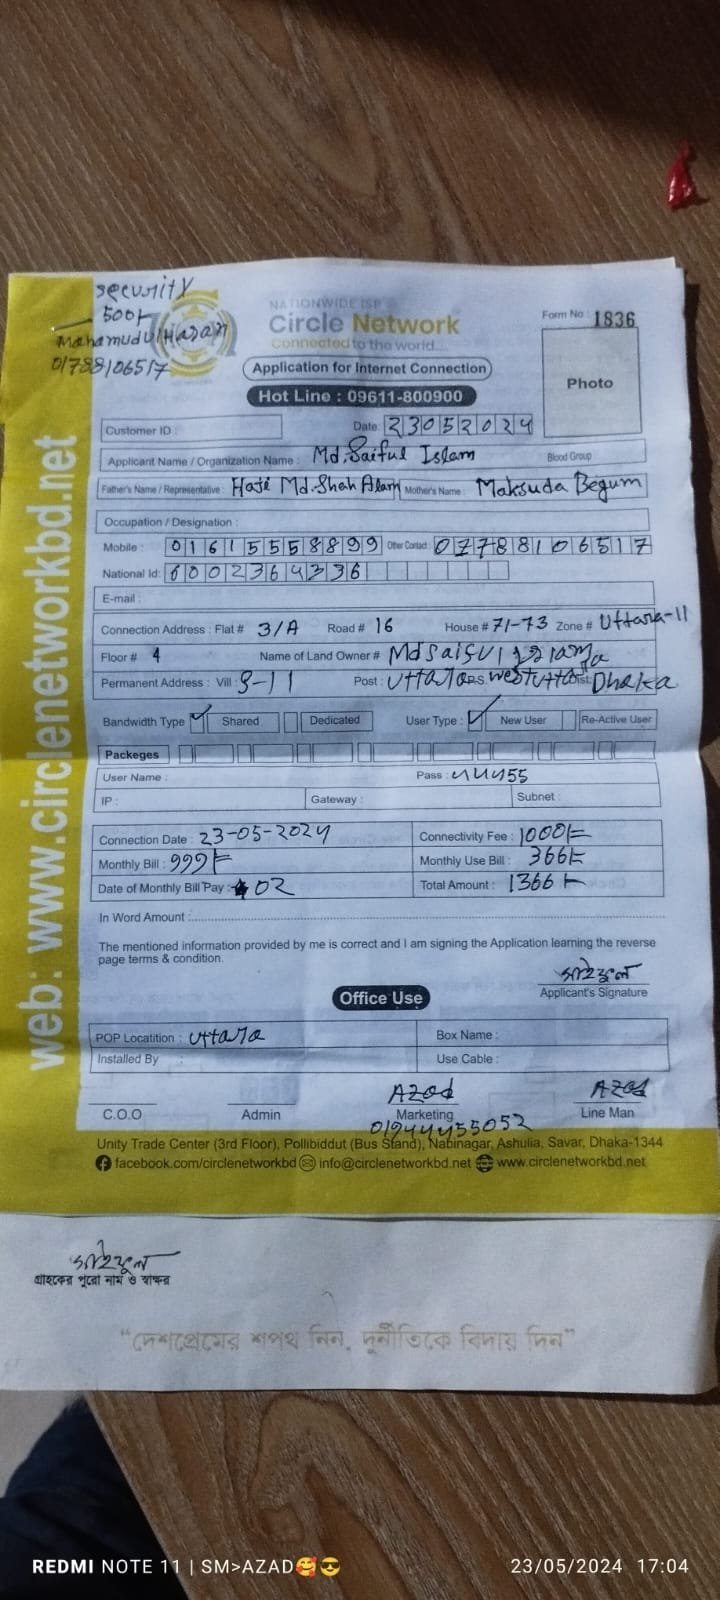 security
500/-
Mahamudul Hasan
01788106517
NATIONWIDE ISP
Circle Network
Connected to the world...
Form No : 1836
Application for Internet Connection
Photo
Hot Line : 09611-800900
Customer ID :
Date: 23052024
Applicant Name / Organization Name : Md. Saiful Islam Blood Group
Father's Name / Representative : Haji Md. Shah Alam Mother's Name : Maksuda Begum
Occupation / Designation :
Mobile : 01615558899 Other Contact : 07788106517
National Id: 6002364336
E-mail :
Connection Address : Flat # 3/A Road # 16 House # 71-73 Zone # Uttara-11
Floor # 4 Name of Land Owner # Md saiful
Permanent Address : Vill : S-11 Post : Uttara P.S. west uttara Dist: Dhaka
Bandwidth Type Shared Dedicated User Type : New User Re-Active User
Packeges
User Name : Pass : 444455
IP : Gateway : Subnet :
Connection Date : 23-05-2024 Connectivity Fee : 1000/=
Monthly Bill : 999/= Monthly Use Bill : 366/=
Date of Monthly Bill Pay : 02 Total Amount : 1366/=
In Word Amount :
The mentioned information provided by me is correct and I am signing the Application learning the reverse
page terms & condition.
সাইফুল
Applicant's Signature
Office Use
POP Locatition : uttara Box Name :
Installed By : Use Cable :
Azad Azad
C.O.O Admin Marketing Line Man
01944455052
Unity Trade Center (3rd Floor), Pollibiddut (Bus Stand), Nabinagar, Ashulia, Savar, Dhaka-1344
facebook.com/circlenetworkbd info@circlenetworkbd.net www.circlenetworkbd.net
web: www.circlenetworkbd.net
সাইফুল
গ্রাহকের পুরো নাম ও স্বাক্ষর
“দেশপ্রেমের শপথ নিন, দুর্নীতিকে বিদায় দিন”
REDMI NOTE 11 | SM>AZAD🥰😎 23/05/2024 17:04